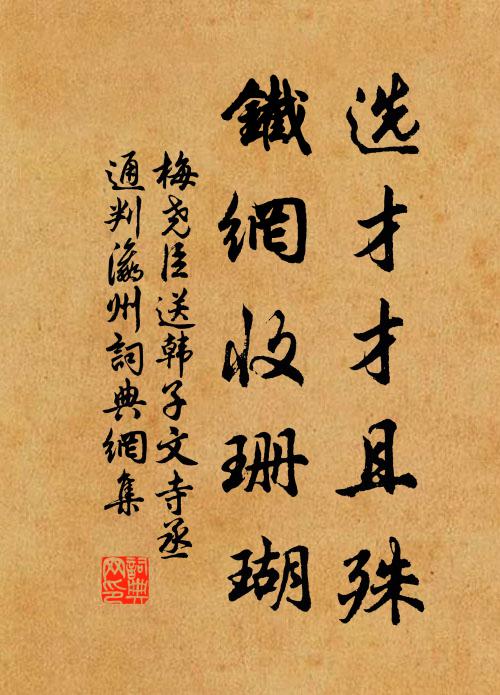 选才才且殊
鐵網收珊瑚
梅尧臣送韩子文寺丞
通判瀛州詞典網集
詞典
网印